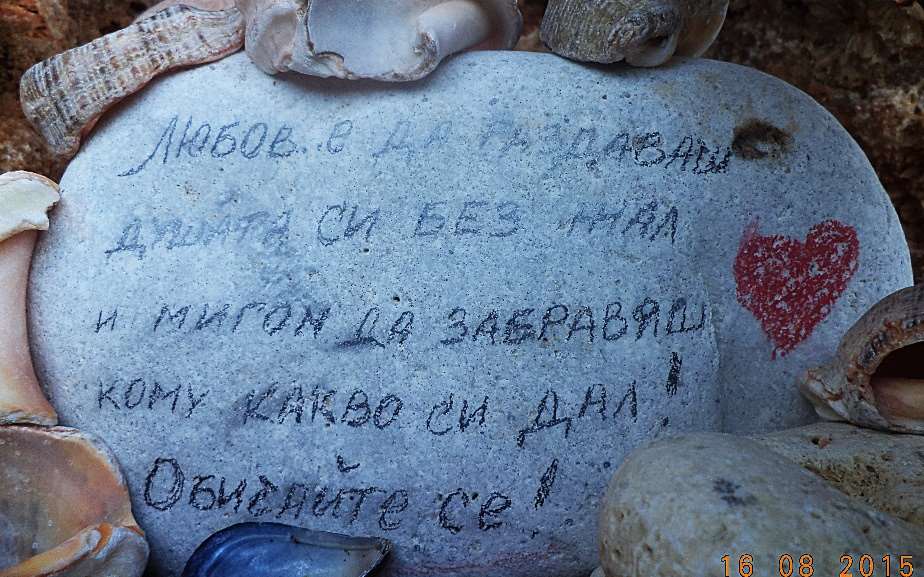 ЛЮБОВ е ДА РАЗДАВАШ
ДУШАТА СИ БЕЗ ЖАЛ
и МИГОМ ДА ЗАБРАВЯШ
КОМУ КАКВО СИ ДАЛ!
Обичайте се!
16 08 2015